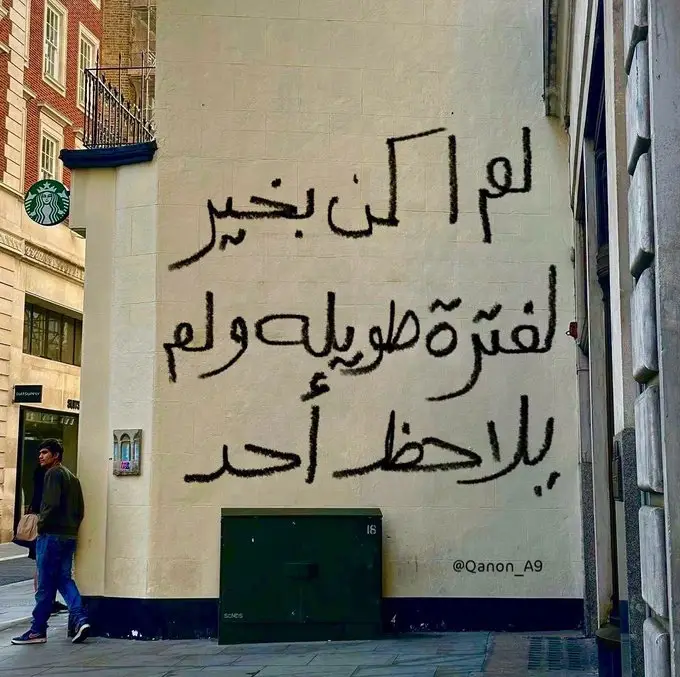 لم اكن بخير
لفترة طويله ولم
يلاحظ أحد
@Qanon_A9
16